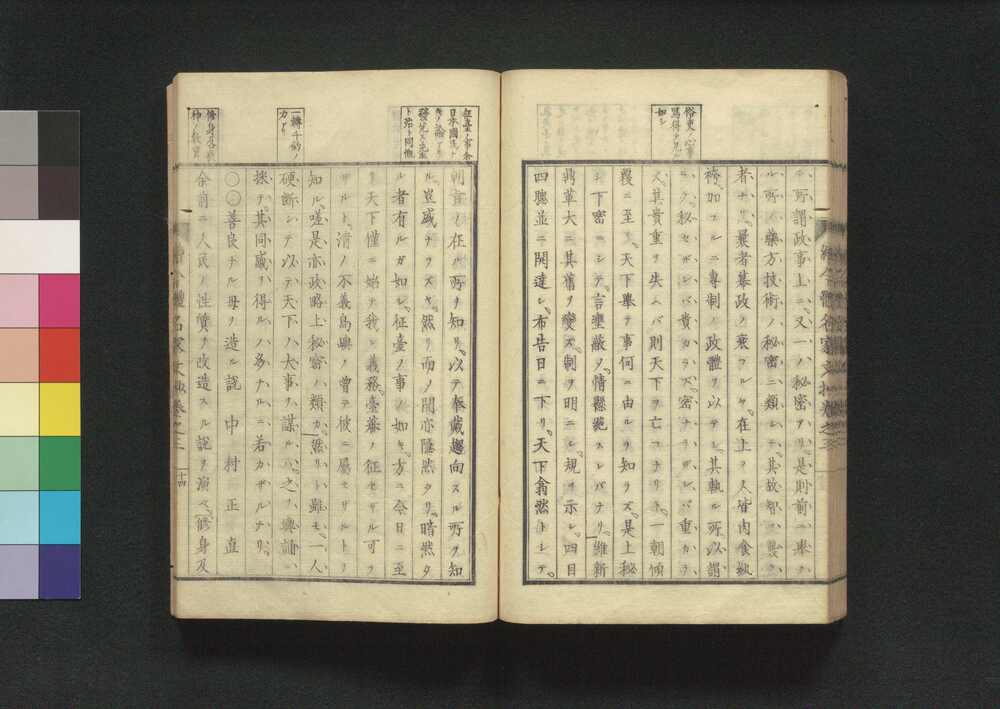 俗吏ノ心事
寫得テ
如シ
ル所謂政事上ニ又一ハ秘密アリ是則前ニ擧ク
ル所ノ藥方技術ノ秘密ニ類シテ其故智ヲ襲フ
者ナリ曩者幕政ノ衰フルヤ在上ノ人皆肉食紈
袴加フルニ專制ノ政體ヲ以テシ其執ル所以謂
ラク秘セザレバ貴カラズ密ナラザレバ重カラ
ズ其貴重ヲ失ヘバ則天下ヲ亡フナリト一朝傾
覆ニ至リ天下擧テ事何ニ由ルヲ知ラズ是上秘
シ下密ニシテ言壅蔽シ情懸絶スレバナリ維新
鼎革大ニ其舊ヲ變ズ制ヲ明ニシ規ヲ示シ四目
四聰並ニ開達シ布告日ニ下リ天下翕然トシテ
征臺ノ事余
日本國民ノ
ト殆ト同慨
一轉千鈞ノ
力アリ
朝意ノ在ル所ヲ知リ以テ奉戴趨向スル所ヲ知
ル豈盛ナラズヤ然リ而ノ間亦隱然タリ暗然タ
ル者有ルガ如シ征臺ノ事ノ如キ方ニ今日ニ至
リ天下僅ニ始テ我ノ義務臺蕃ノ征セザル可ラ
ザルト清ノ不義島輿ノ曾テ彼ニ屬セザルトヲ
知ル嗟是亦政略上秘密ノ類カ然リト雖モ一人
硬斷シテ以テ天下ノ大事ヲ謀ルハ之ヲ輿論ニ
採テ其同盛ヲ得ルノ多ナルニ若カザルナリ
〇〇善良ナル母ヲ造ル説 中村正直
余前ニ人民ノ性質ヲ改造スル説ヲ演ベ修身及
十四